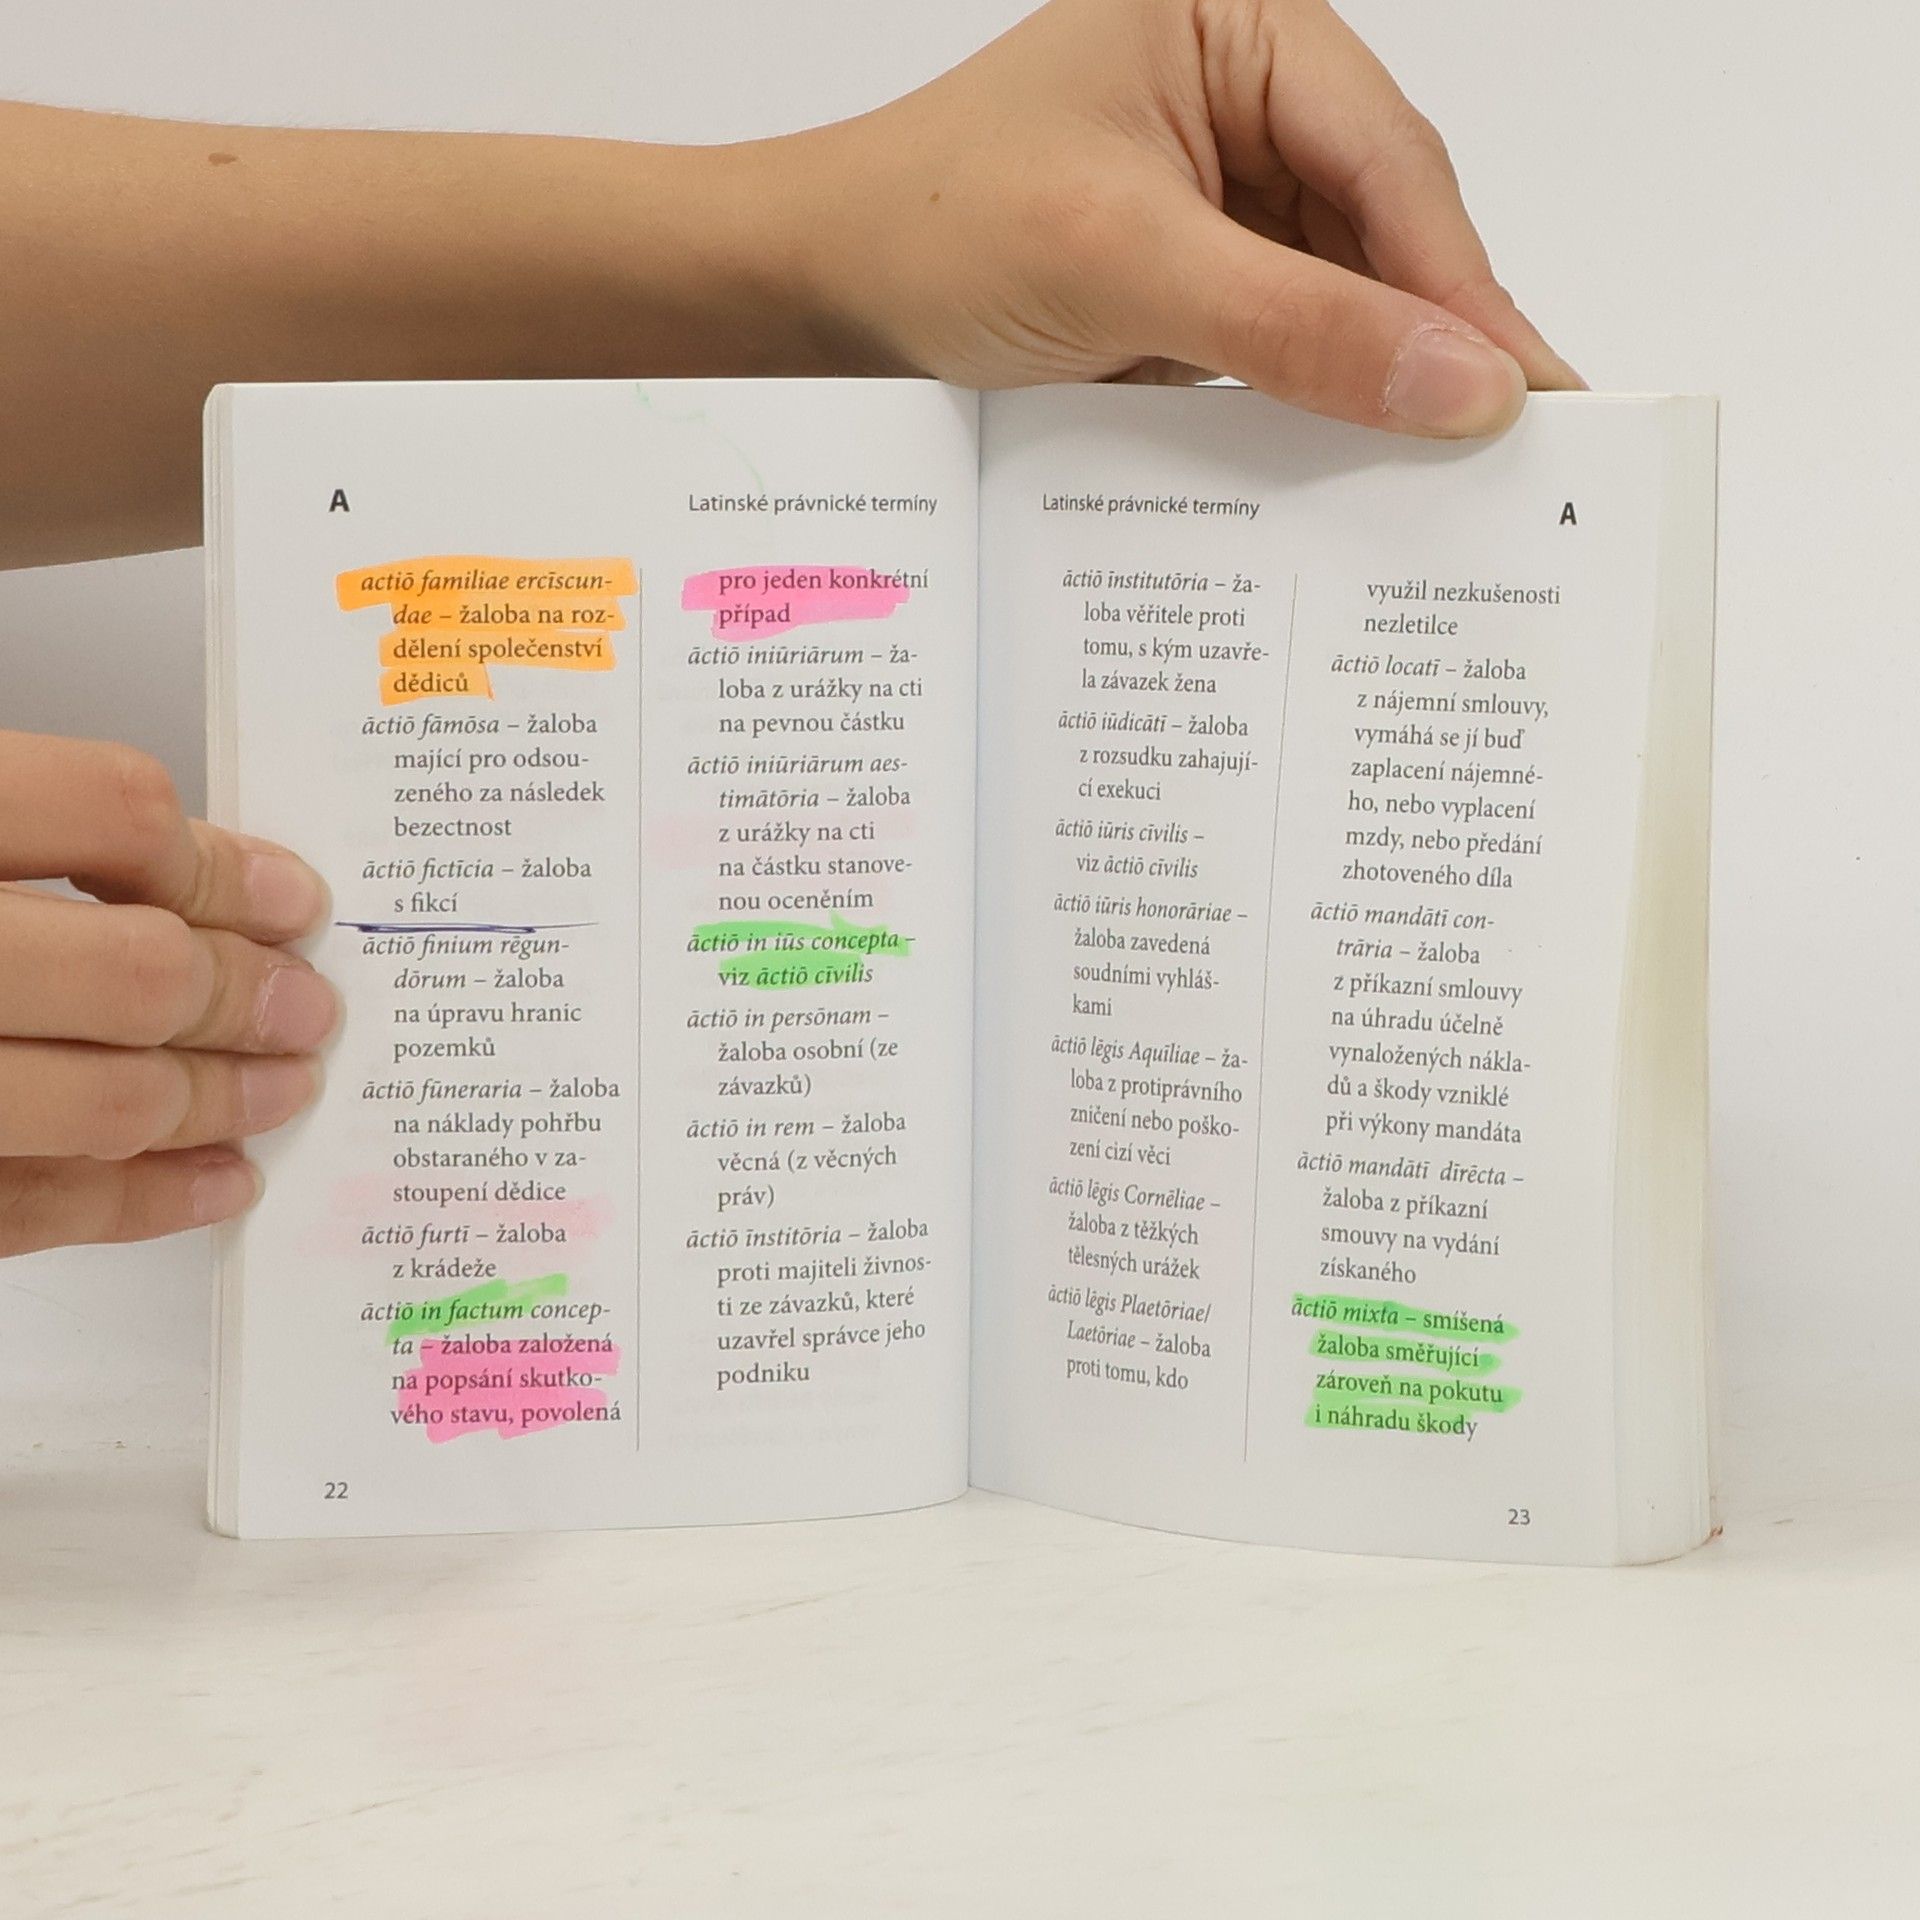 A
Latinské právnické termíny
actiō familiae ercīscun-
dae – žaloba na roz-
dělení společenství
dědiců
āctiō fāmōsa – žaloba
mající pro odsou-
zeného za následek
bezectnost
āctiō fictīcia – žaloba
s fikcí
āctiō finium rēgun-
dōrum – žaloba
na úpravu hranic
pozemků
āctiō fūneraria – žaloba
na náklady pohřbu
obstaraného v za-
stoupení dědice
āctiō furtī – žaloba
z krádeže
āctiō in factum concep-
ta – žaloba založená
na popsání skutko-
vého stavu, povolená
pro jeden konkrétní
případ
āctiō iniūriārum – ža-
loba z urážky na cti
na pevnou částku
āctiō iniūriārum aes-
timātōria – žaloba
z urážky na cti
na částku stanove-
nou oceněním
āctiō in iūs concepta –
viz āctiō cīvilis
āctiō in persōnam –
žaloba osobní (ze
závazků)
āctiō in rem – žaloba
věcná (z věcných
práv)
āctiō īnstitōria – žaloba
proti majiteli živnos-
ti ze závazků, které
uzavřel správce jeho
podniku
22
Latinské právnické termíny
A
āctiō īnstitutōria – ža-
loba věřitele proti
tomu, s kým uzavře-
la závazek žena
āctiō iūdicātī – žaloba
z rozsudku zahajují-
cí exekuci
āctiō iūris cīvilis –
viz āctiō cīvilis
āctiō iūris honorāriae –
žaloba zavedená
soudními vyhláš-
kami
āctiō lēgis Aquīliae – ža-
loba z protiprávního
zničení nebo poško-
zení cizí věci
āctiō lēgis Cornēliae –
žaloba z těžkých
tělesných urážek
āctiō lēgis Plaetōriae/
Laetōriae – žaloba
proti tomu, kdo
využil nezkušenosti
nezletilce
āctiō locatī – žaloba
z nájemní smlouvy,
vymáhá se jí buď
zaplacení nájemné-
ho, nebo vyplacení
mzdy, nebo předání
zhotoveného díla
āctiō mandātī con-
trāria – žaloba
z příkazní smlouvy
na úhradu účelně
vynaložených nákla-
dů a škody vzniklé
při výkony mandáta
āctiō mandātī dīrēcta –
žaloba z příkazní
smouvy na vydání
získaného
āctiō mixta – smíšená
žaloba směřující
zároveň na pokutu
i náhradu škody
23